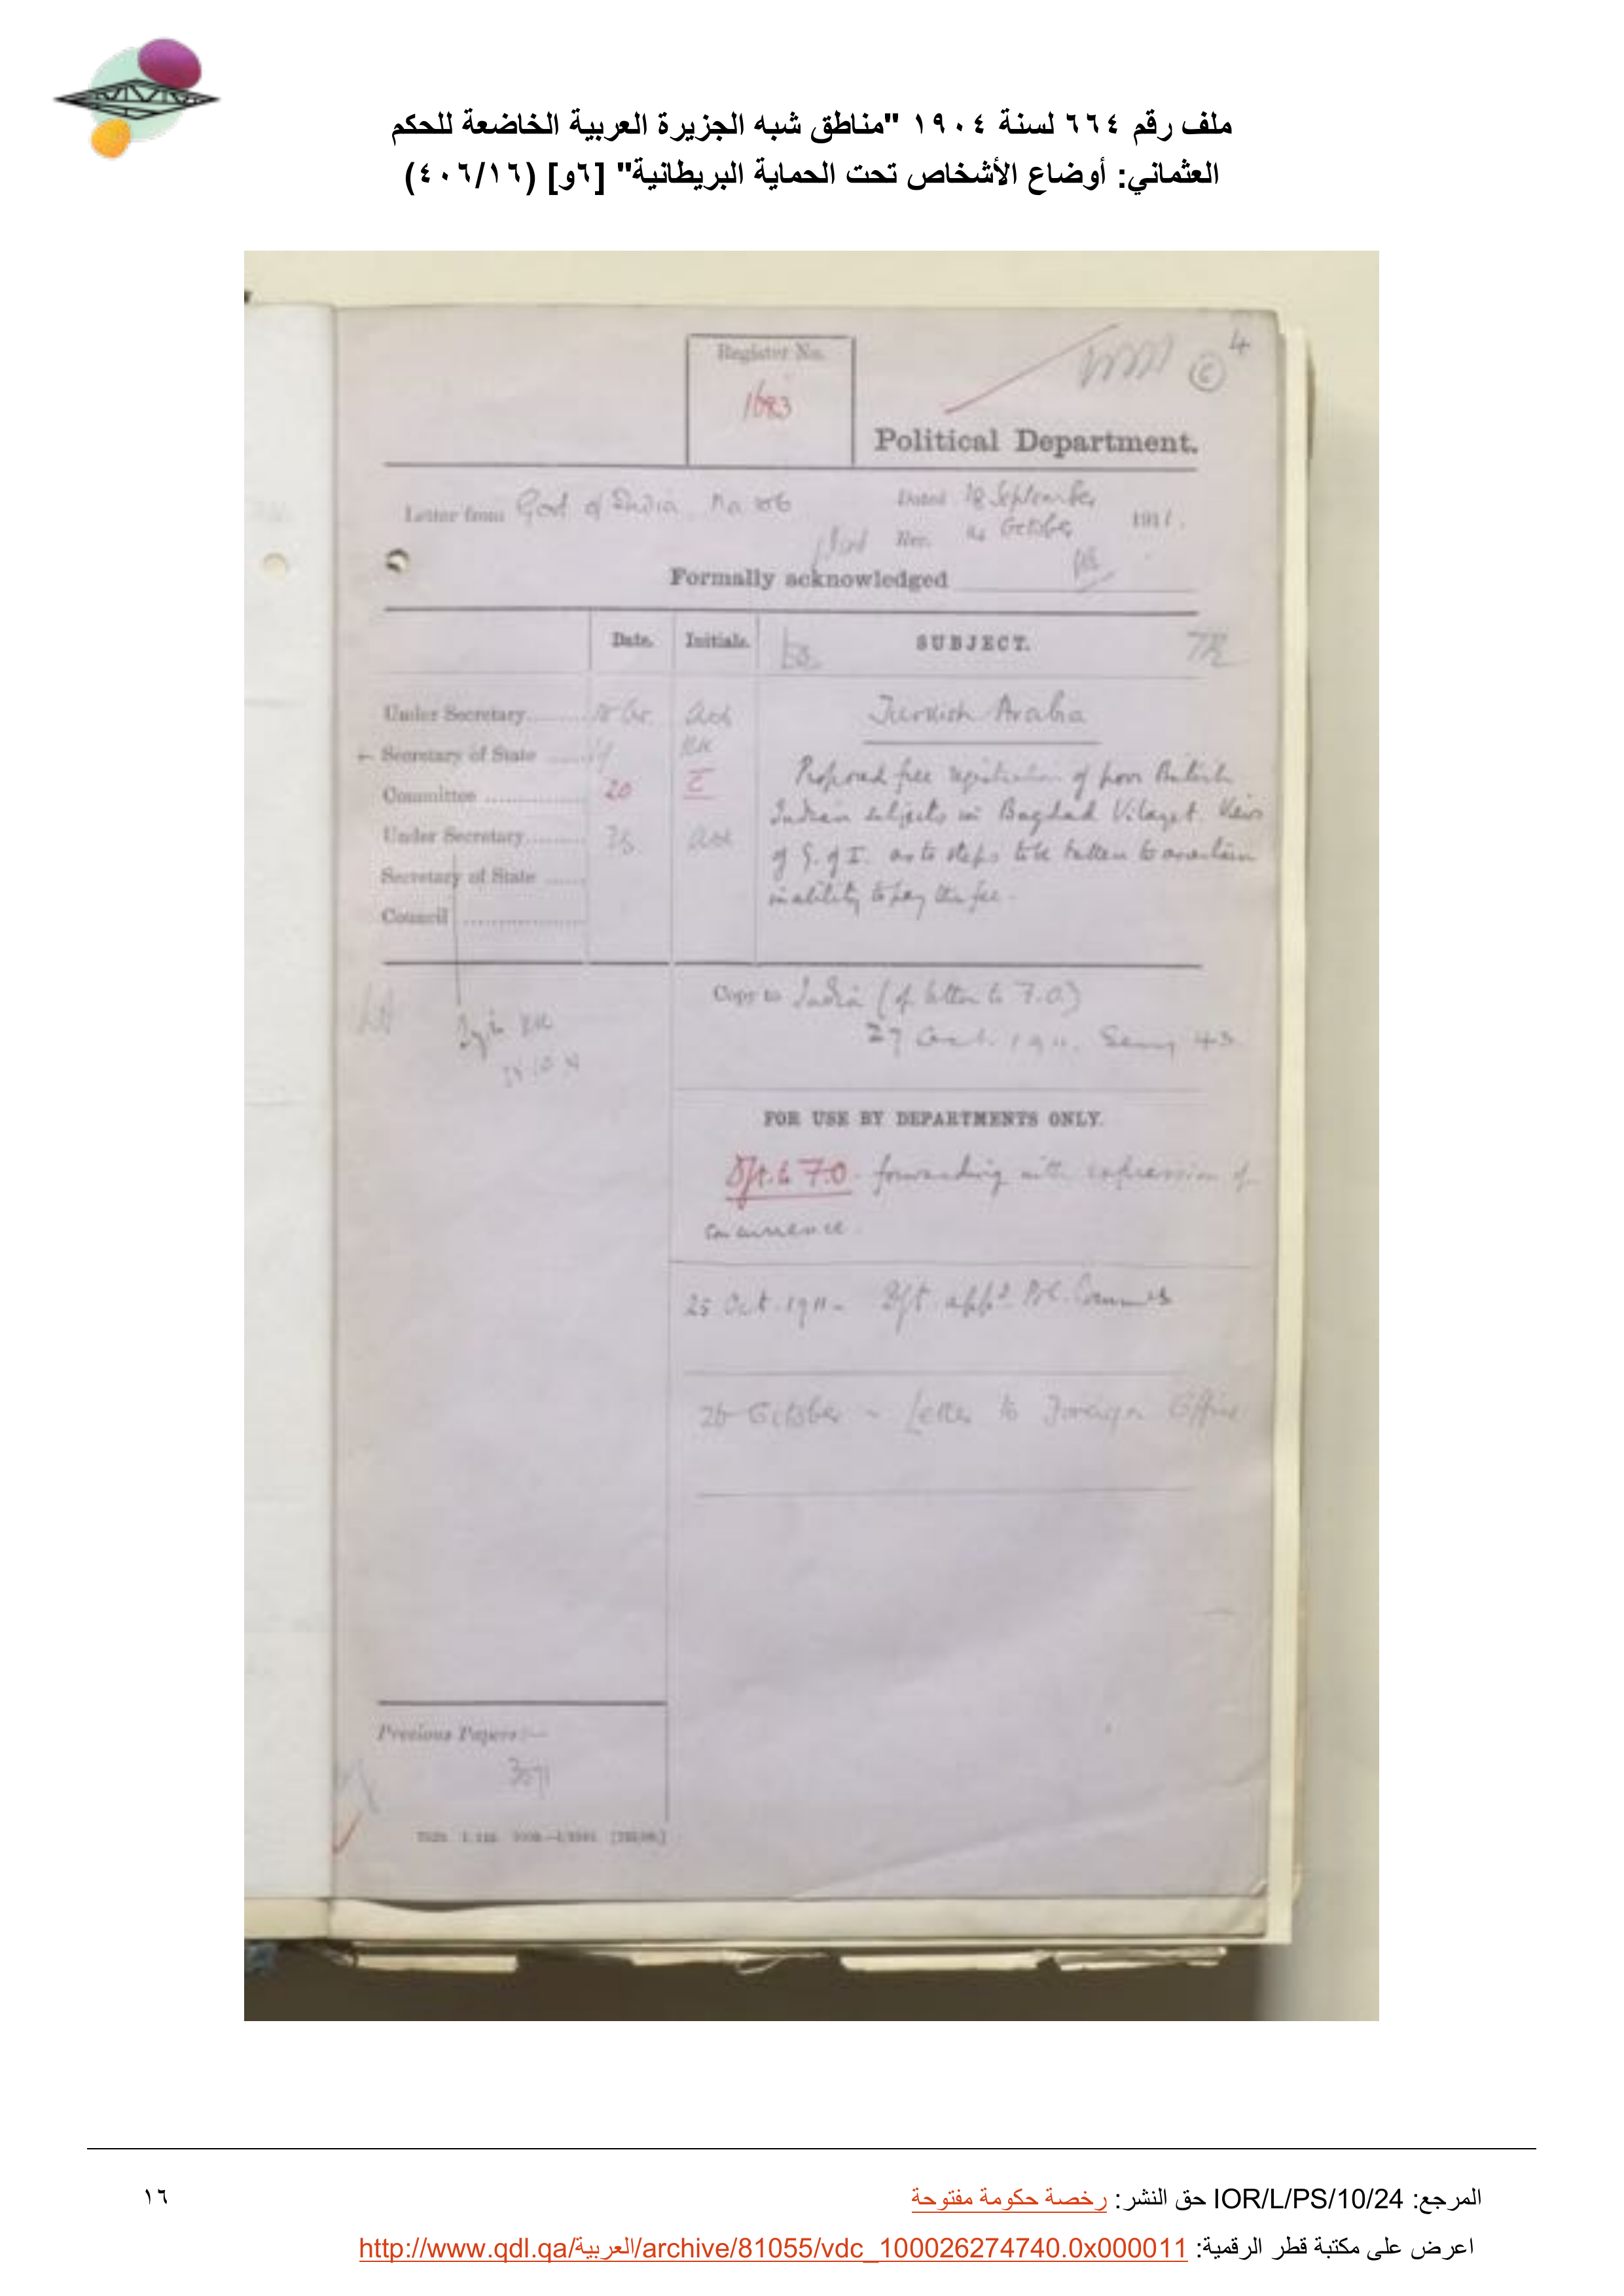 ملف رقم ٦٦٤ لسنة ١٩٠٤ "مناطق شبه الجزيرة العربية الخاضعة للحكم
العثماني: أوضاع الأشخاص تحت الحماية البريطانية" [٦و] (٤٠٦/١٦)
4
6
Register No.
1683
Political Department.
Letter from Govt of India No 106
Dated 28 September
Rec. 14 October 1911.
Formally acknowledged
Date. Initials. SUBJECT.
Under Secretary
Secretary of State
Committee 20 C
Under Secretary
Secretary of State
Council
Turkish Arabia
Proposed free registration of poor British
Indian subjects in Bagdad Vilayet. Views
of G. of I. as to steps to be taken to ascertain
inability to pay the fee.
Copy to India (of letter to F.O.)
27 Oct. 1911. Secy 43
FOR USE BY DEPARTMENTS ONLY.
Dft. to F.O. forwarding with expression of
concurrence.
25 Oct. 1911 - Dft. appd Pol. Committee
26 October - Letter to Foreign Office
Previous Papers:—
3071
المرجع: IOR/L/PS/10/24 حق النشر: رخصة حكومة مفتوحة
١٦
اعرض على مكتبة قطر الرقمية: http://www.qdl.qa/العربية/archive/81055/vdc_100026274740.0x000011